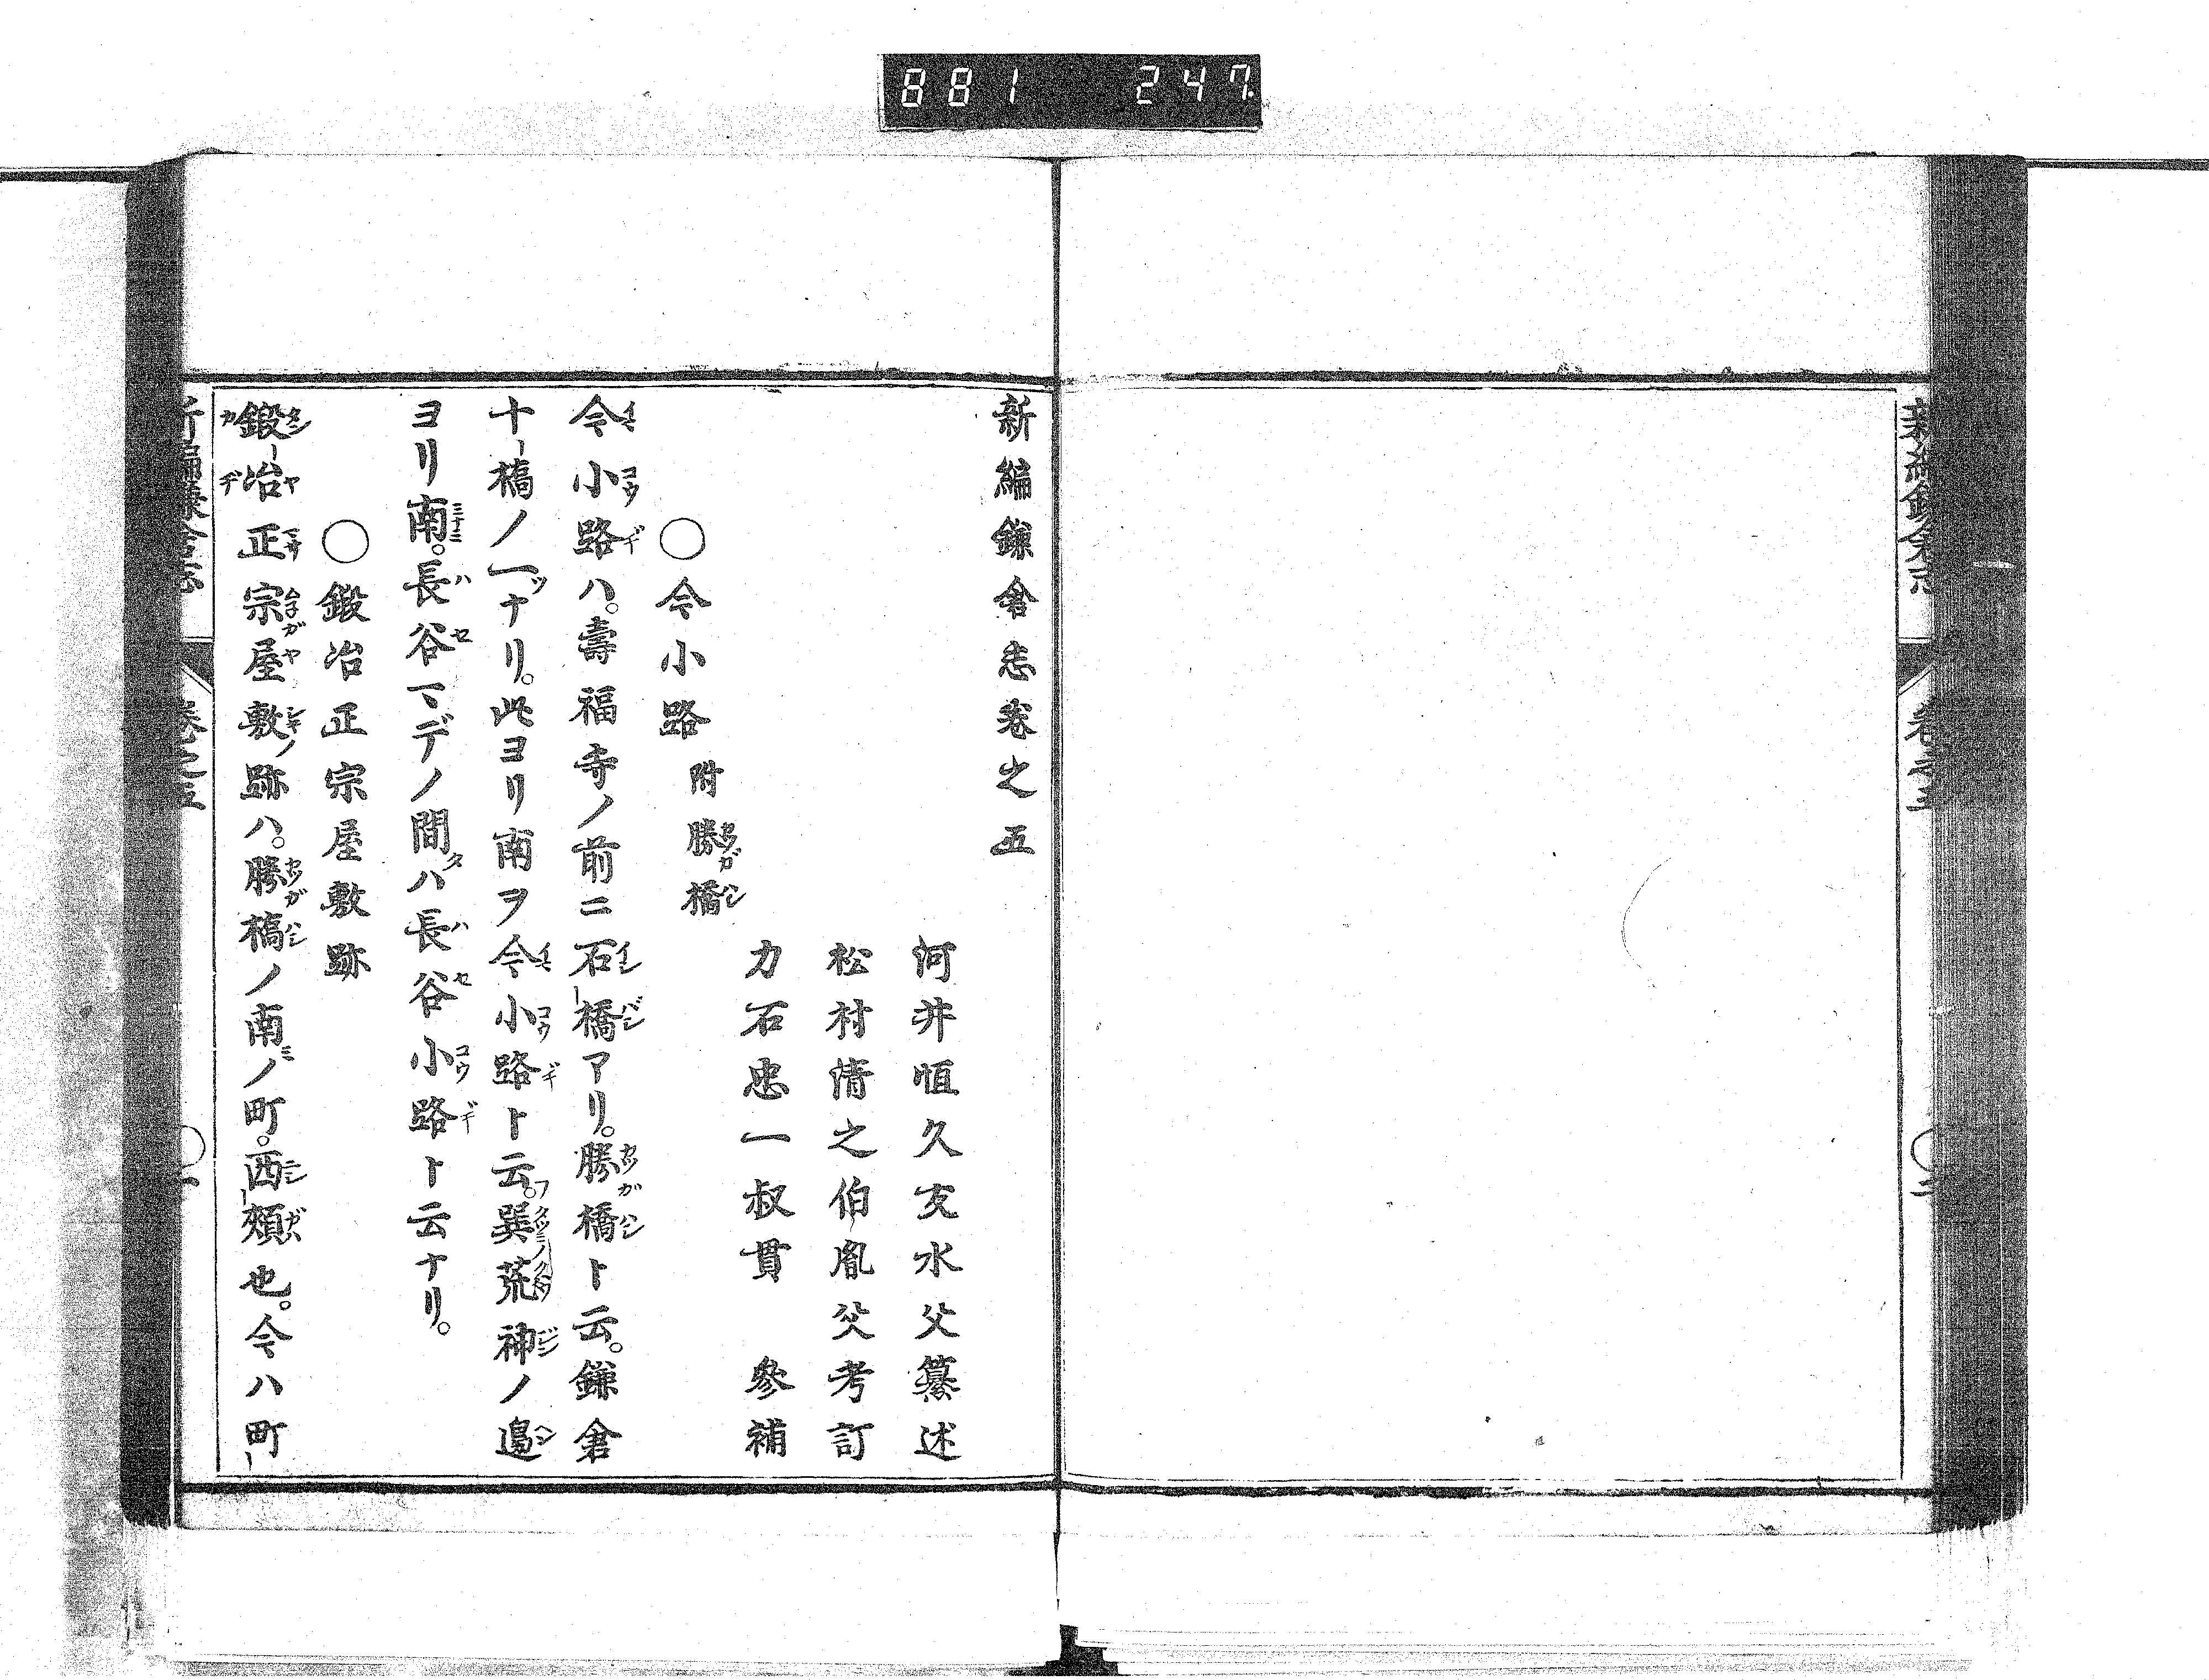 881 247.
新編鎌倉志巻之五
河井恒久友水父纂述
松村清之伯胤父考訂
力石忠一叔貫 參補
○今小路附勝橋
今小路ハ。壽福寺ノ前ニ石橋アリ。勝橋ト云。鎌倉
十橋ノ一ツナリ。此ヨリ南ヲ今小路ト云。巽荒神ノ邉
ヨリ南。長谷マデノ間ハ長谷小路ト云ナリ。
○鍛冶正宗屋敷跡
鍛冶正宗屋敷ノ跡ハ。勝橋ノ南ノ町。西頰也。今ハ町